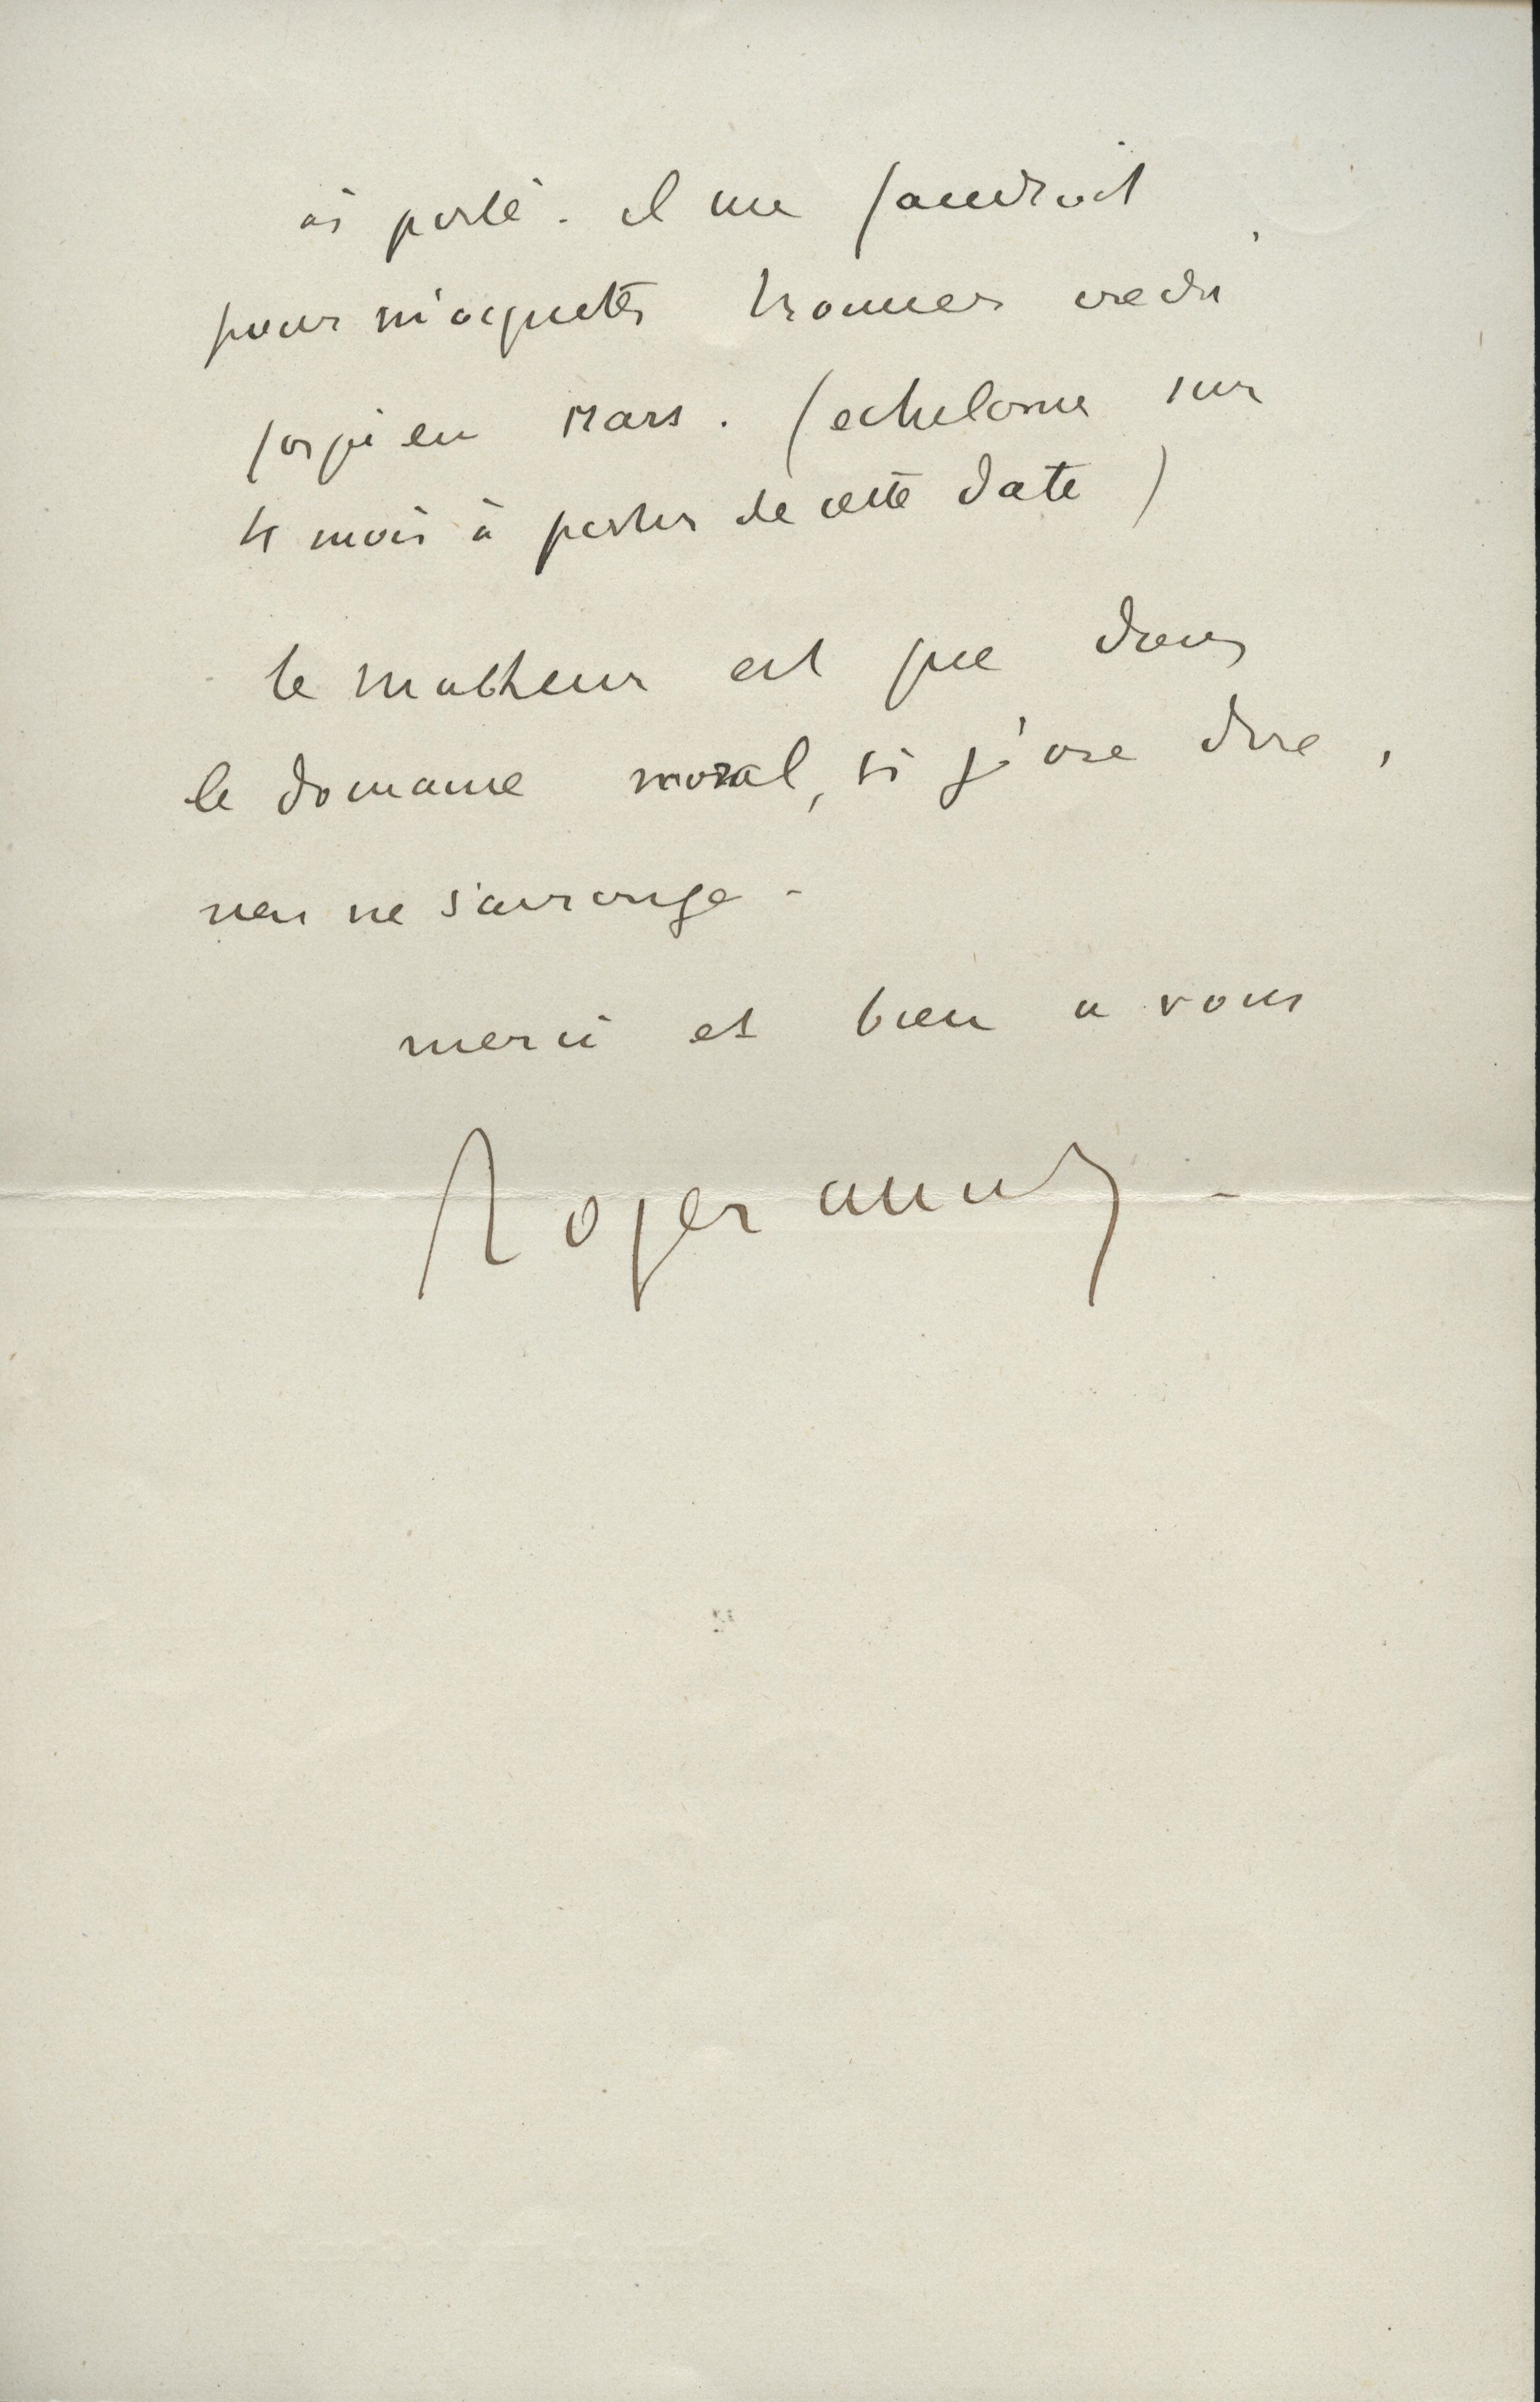 ai parlé. il me faudrait
pour m'acquitter trouver credit
jusqu'en Mars. (echelonné sur
4 mois à partir de cette date)
le malheur est que dans
le domaine moral, si j'ose dire,
rien ne s'arrange -
merci et bien a vous
Roger